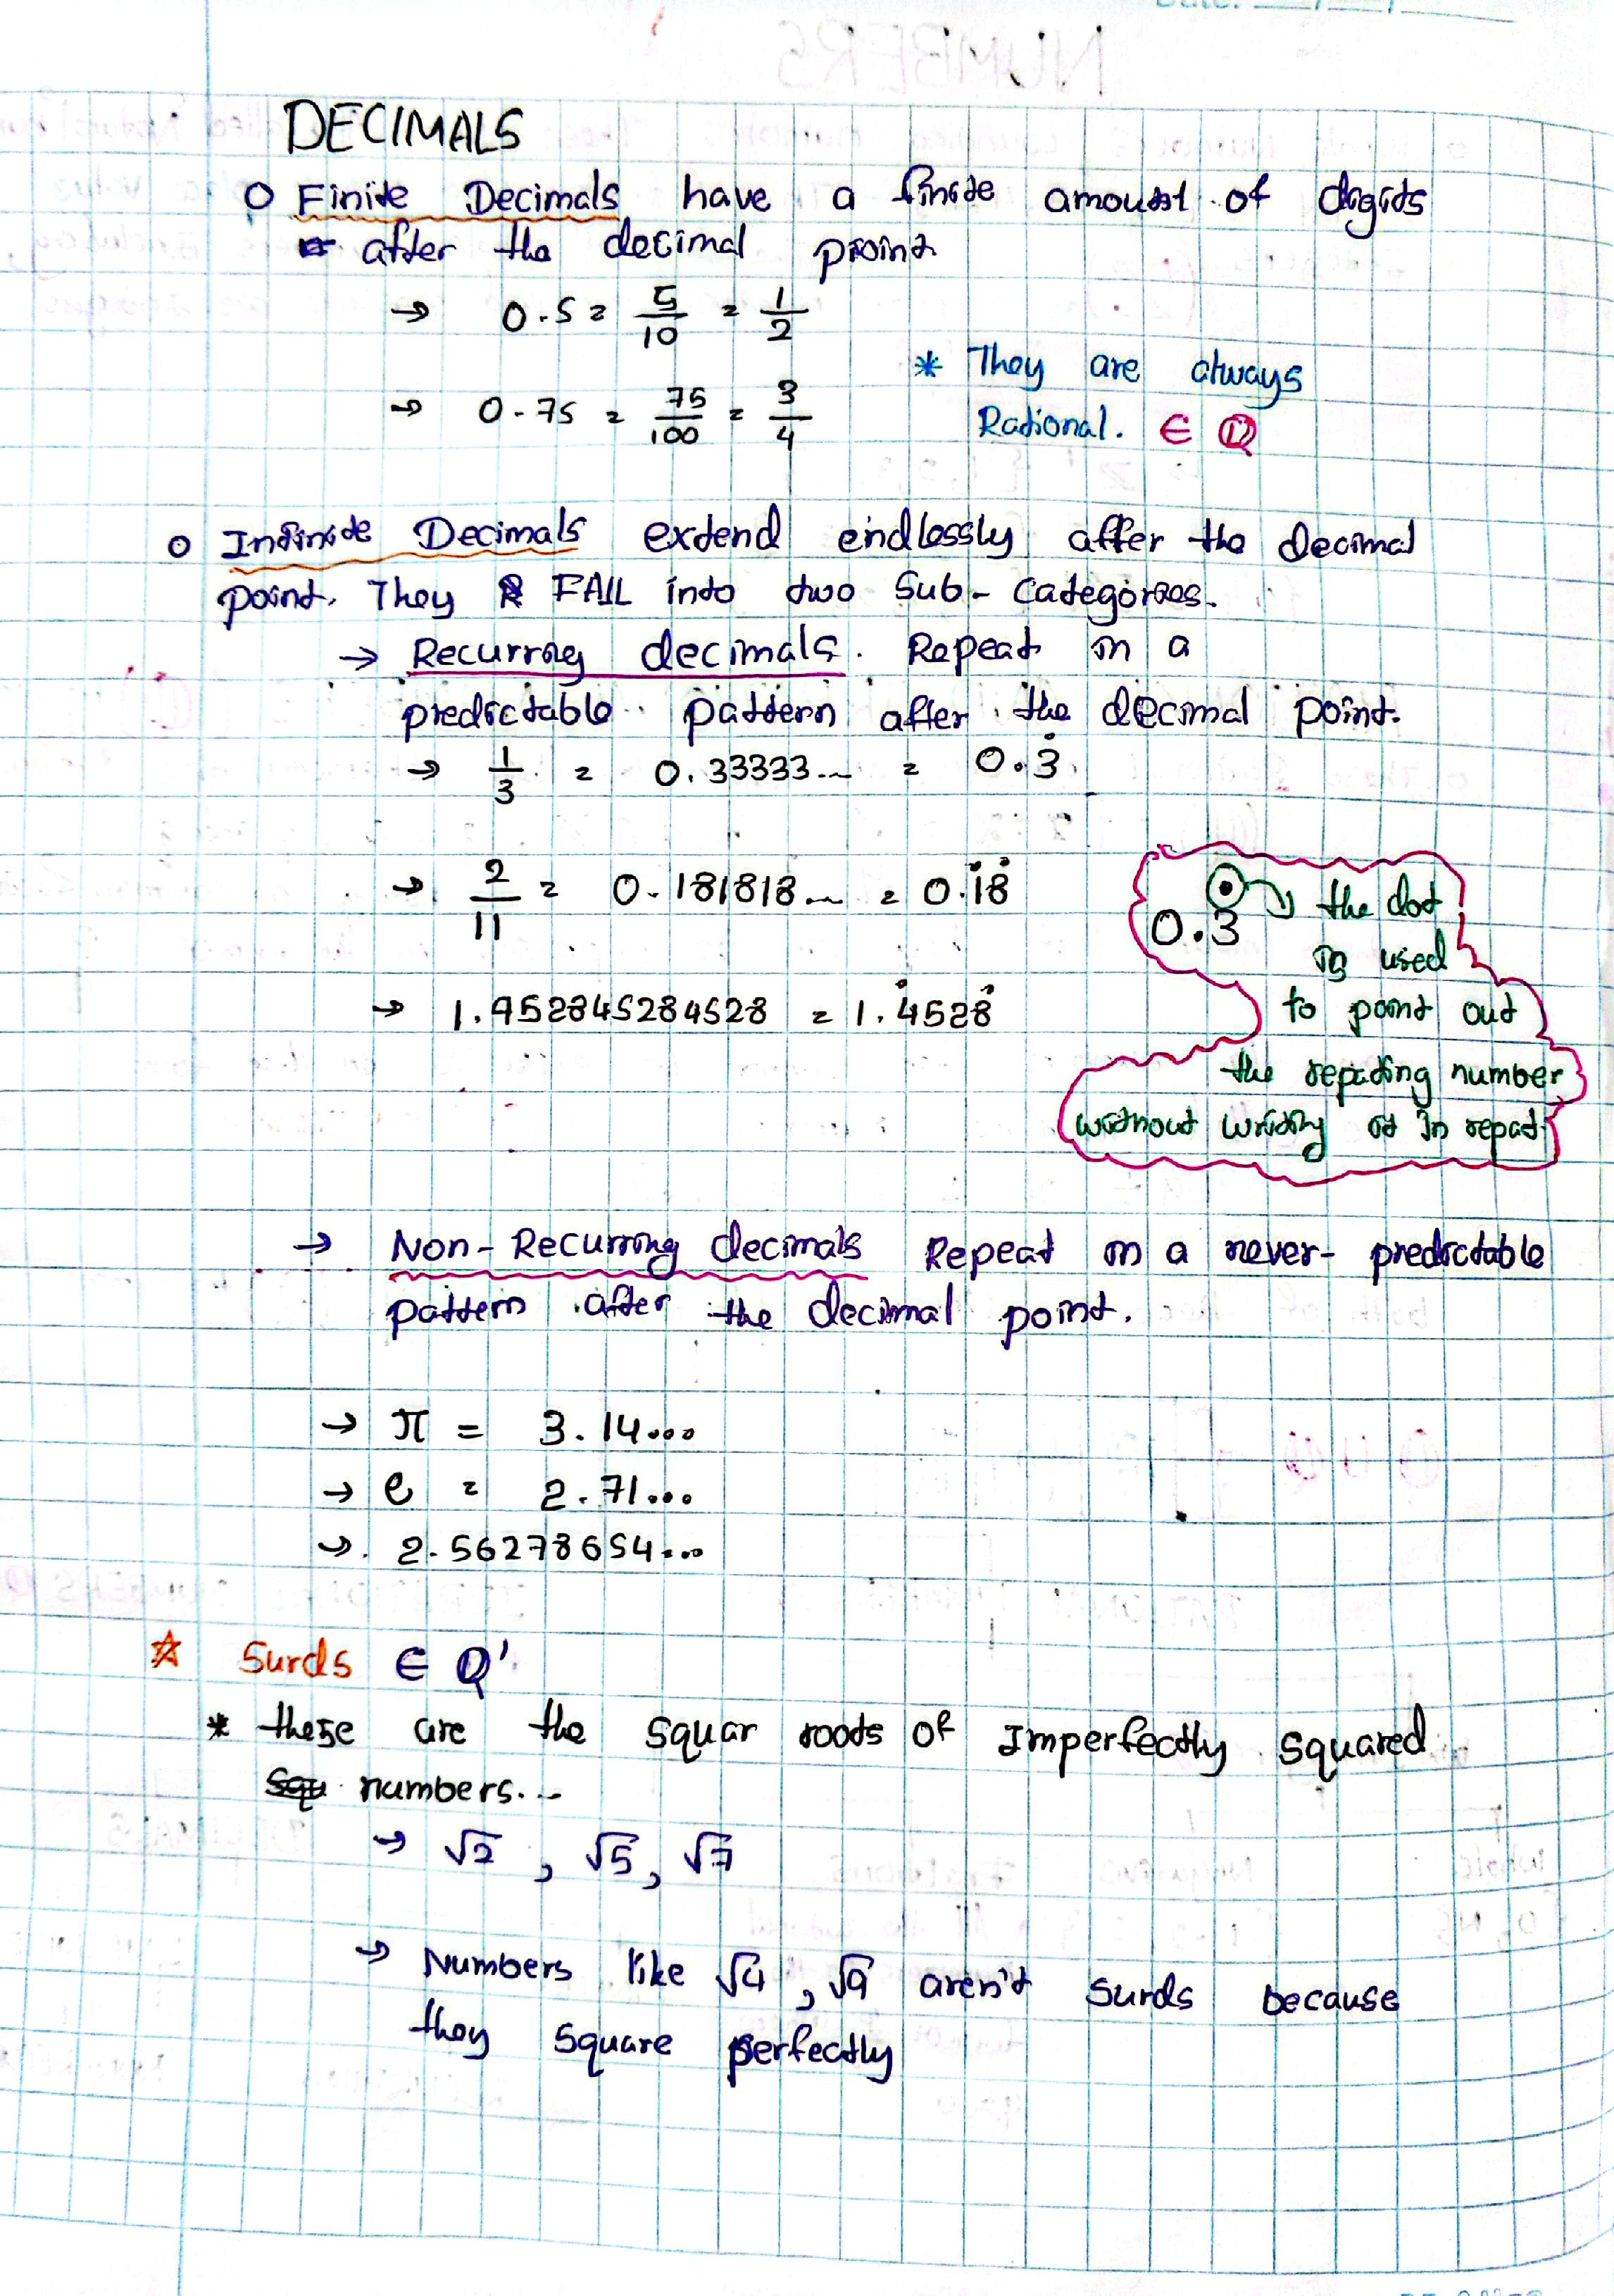 DECIMALS
o Finite Decimals have a finite amount of digits
after the decimal point
→ 0.5 = 5/10 = 1/2
→ 0.75 = 75/100 = 3/4
* They are always
Rational. ∈ ℚ
o Infinite Decimals extend endlessly after the decimal
point. They FALL into two Sub-Categories.
→ Recurring decimals. Repeat in a
predictable pattern after the decimal point.
→ 1/3 = 0.33333... = 0.3̇
→ 2/11 = 0.181818... = 0.1̇8̇
0.3̇ → the dot
is used
to point out
the repating number
without writing it in repat
→ 1.452845284528 = 1.4̇528̇
→ Non-Recurring decimals Repeat in a never-predictable
pattern after the decimal point.
→ π = 3.14...
→ e = 2.71...
→ 2.56278654...
☆ Surds ∈ Q'
* these are the squar roots of Imperfectly squared
numbers...
→ √2, √5, √7
→ Numbers like √4, √9 aren't surds because
they square perfectly